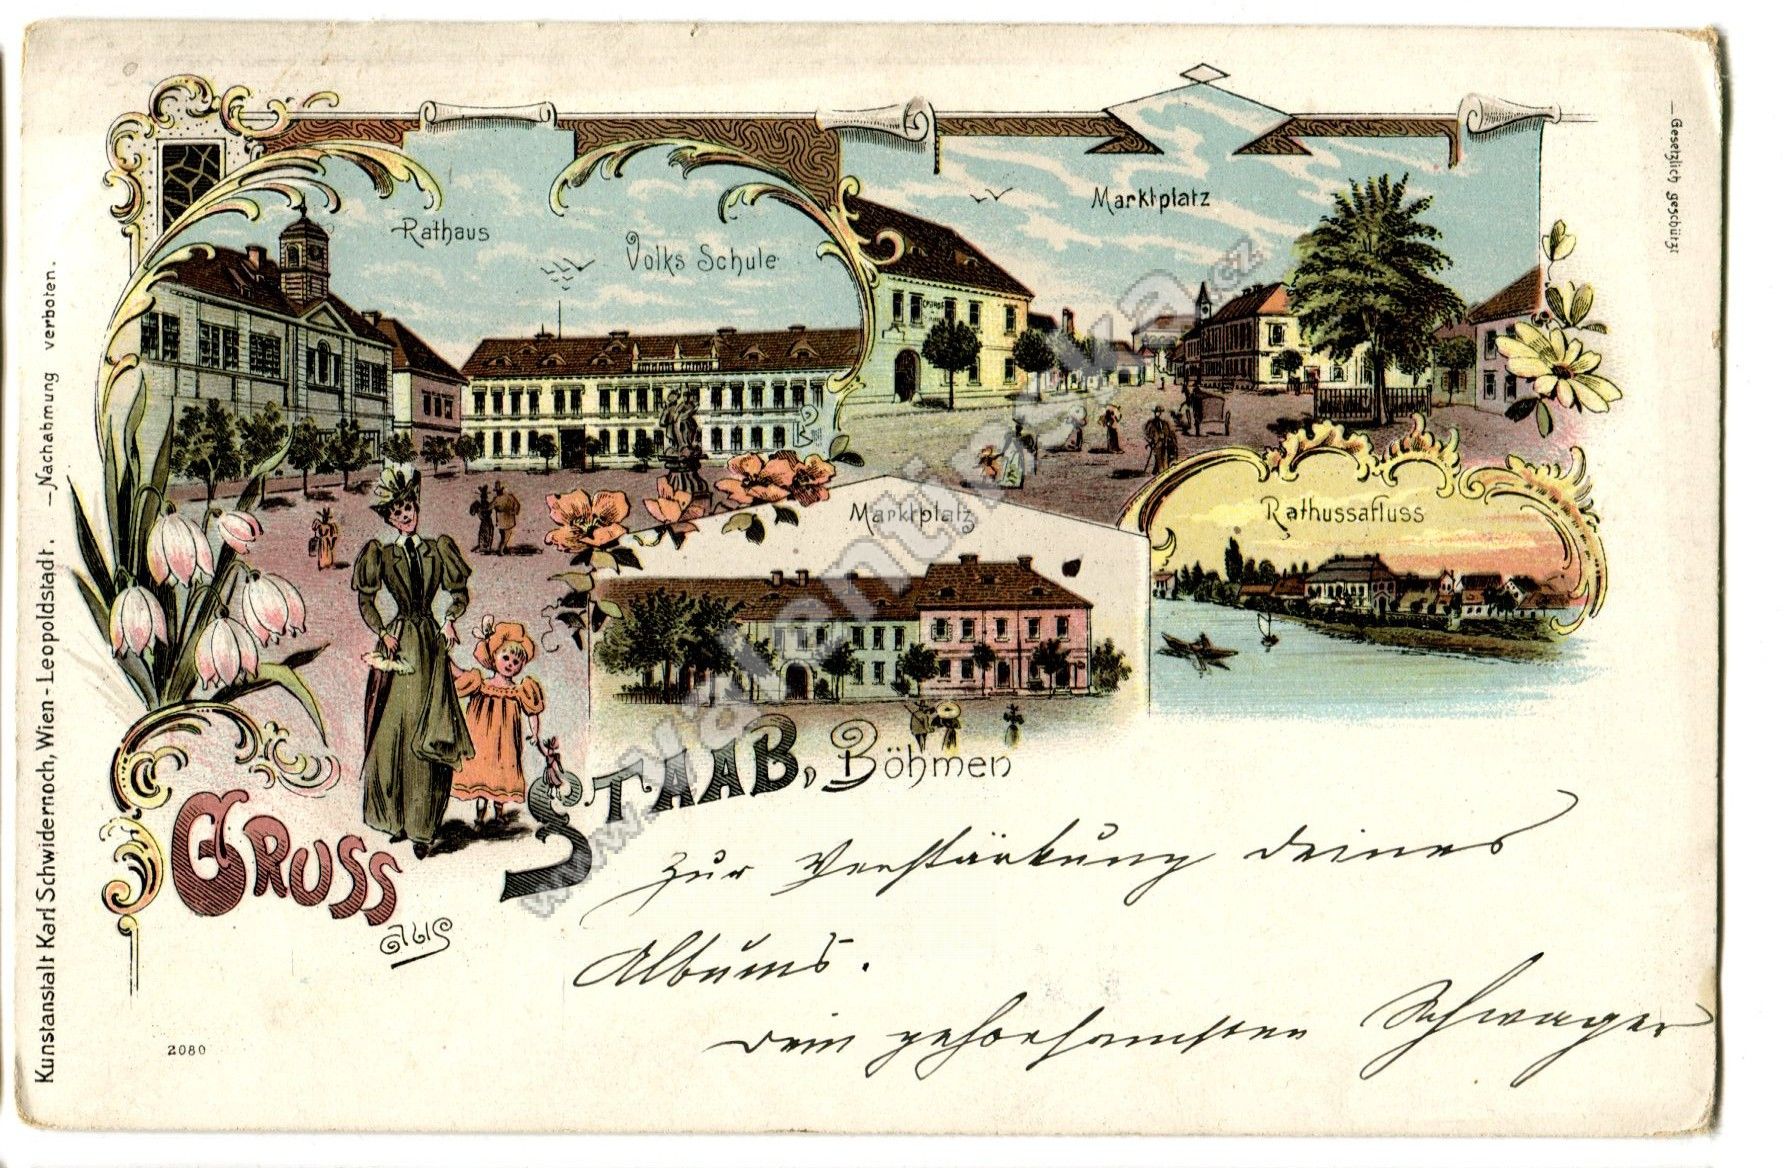 Rathaus
Volks Schule
Marktplatz
Marktplatz
Rathussafluss
Gruss
aus
Staab, Böhmen
Zur Verstärkung deines
Albums.
Dein gehorsamster Schwager
2080
Kunstanstalt Karl Schwidernoch, Wien - Leopoldstadt. — Nachahmung verboten.
— Gesetzlich geschützt
www.valentinska.cz